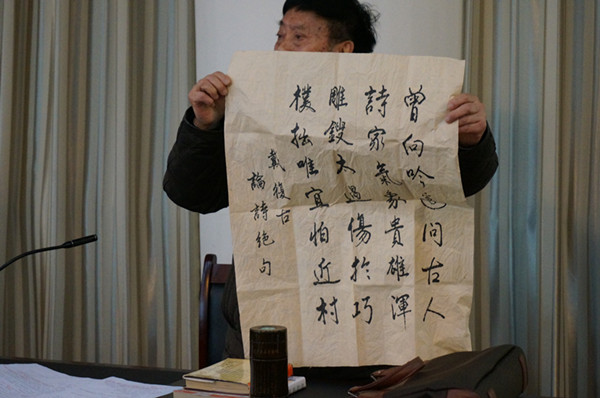 曾向吟邊問古人
詩家氣象貴雄渾
雕鎪太過傷於巧
樸拙唯宜怕近村
戴復古
論詩絕句